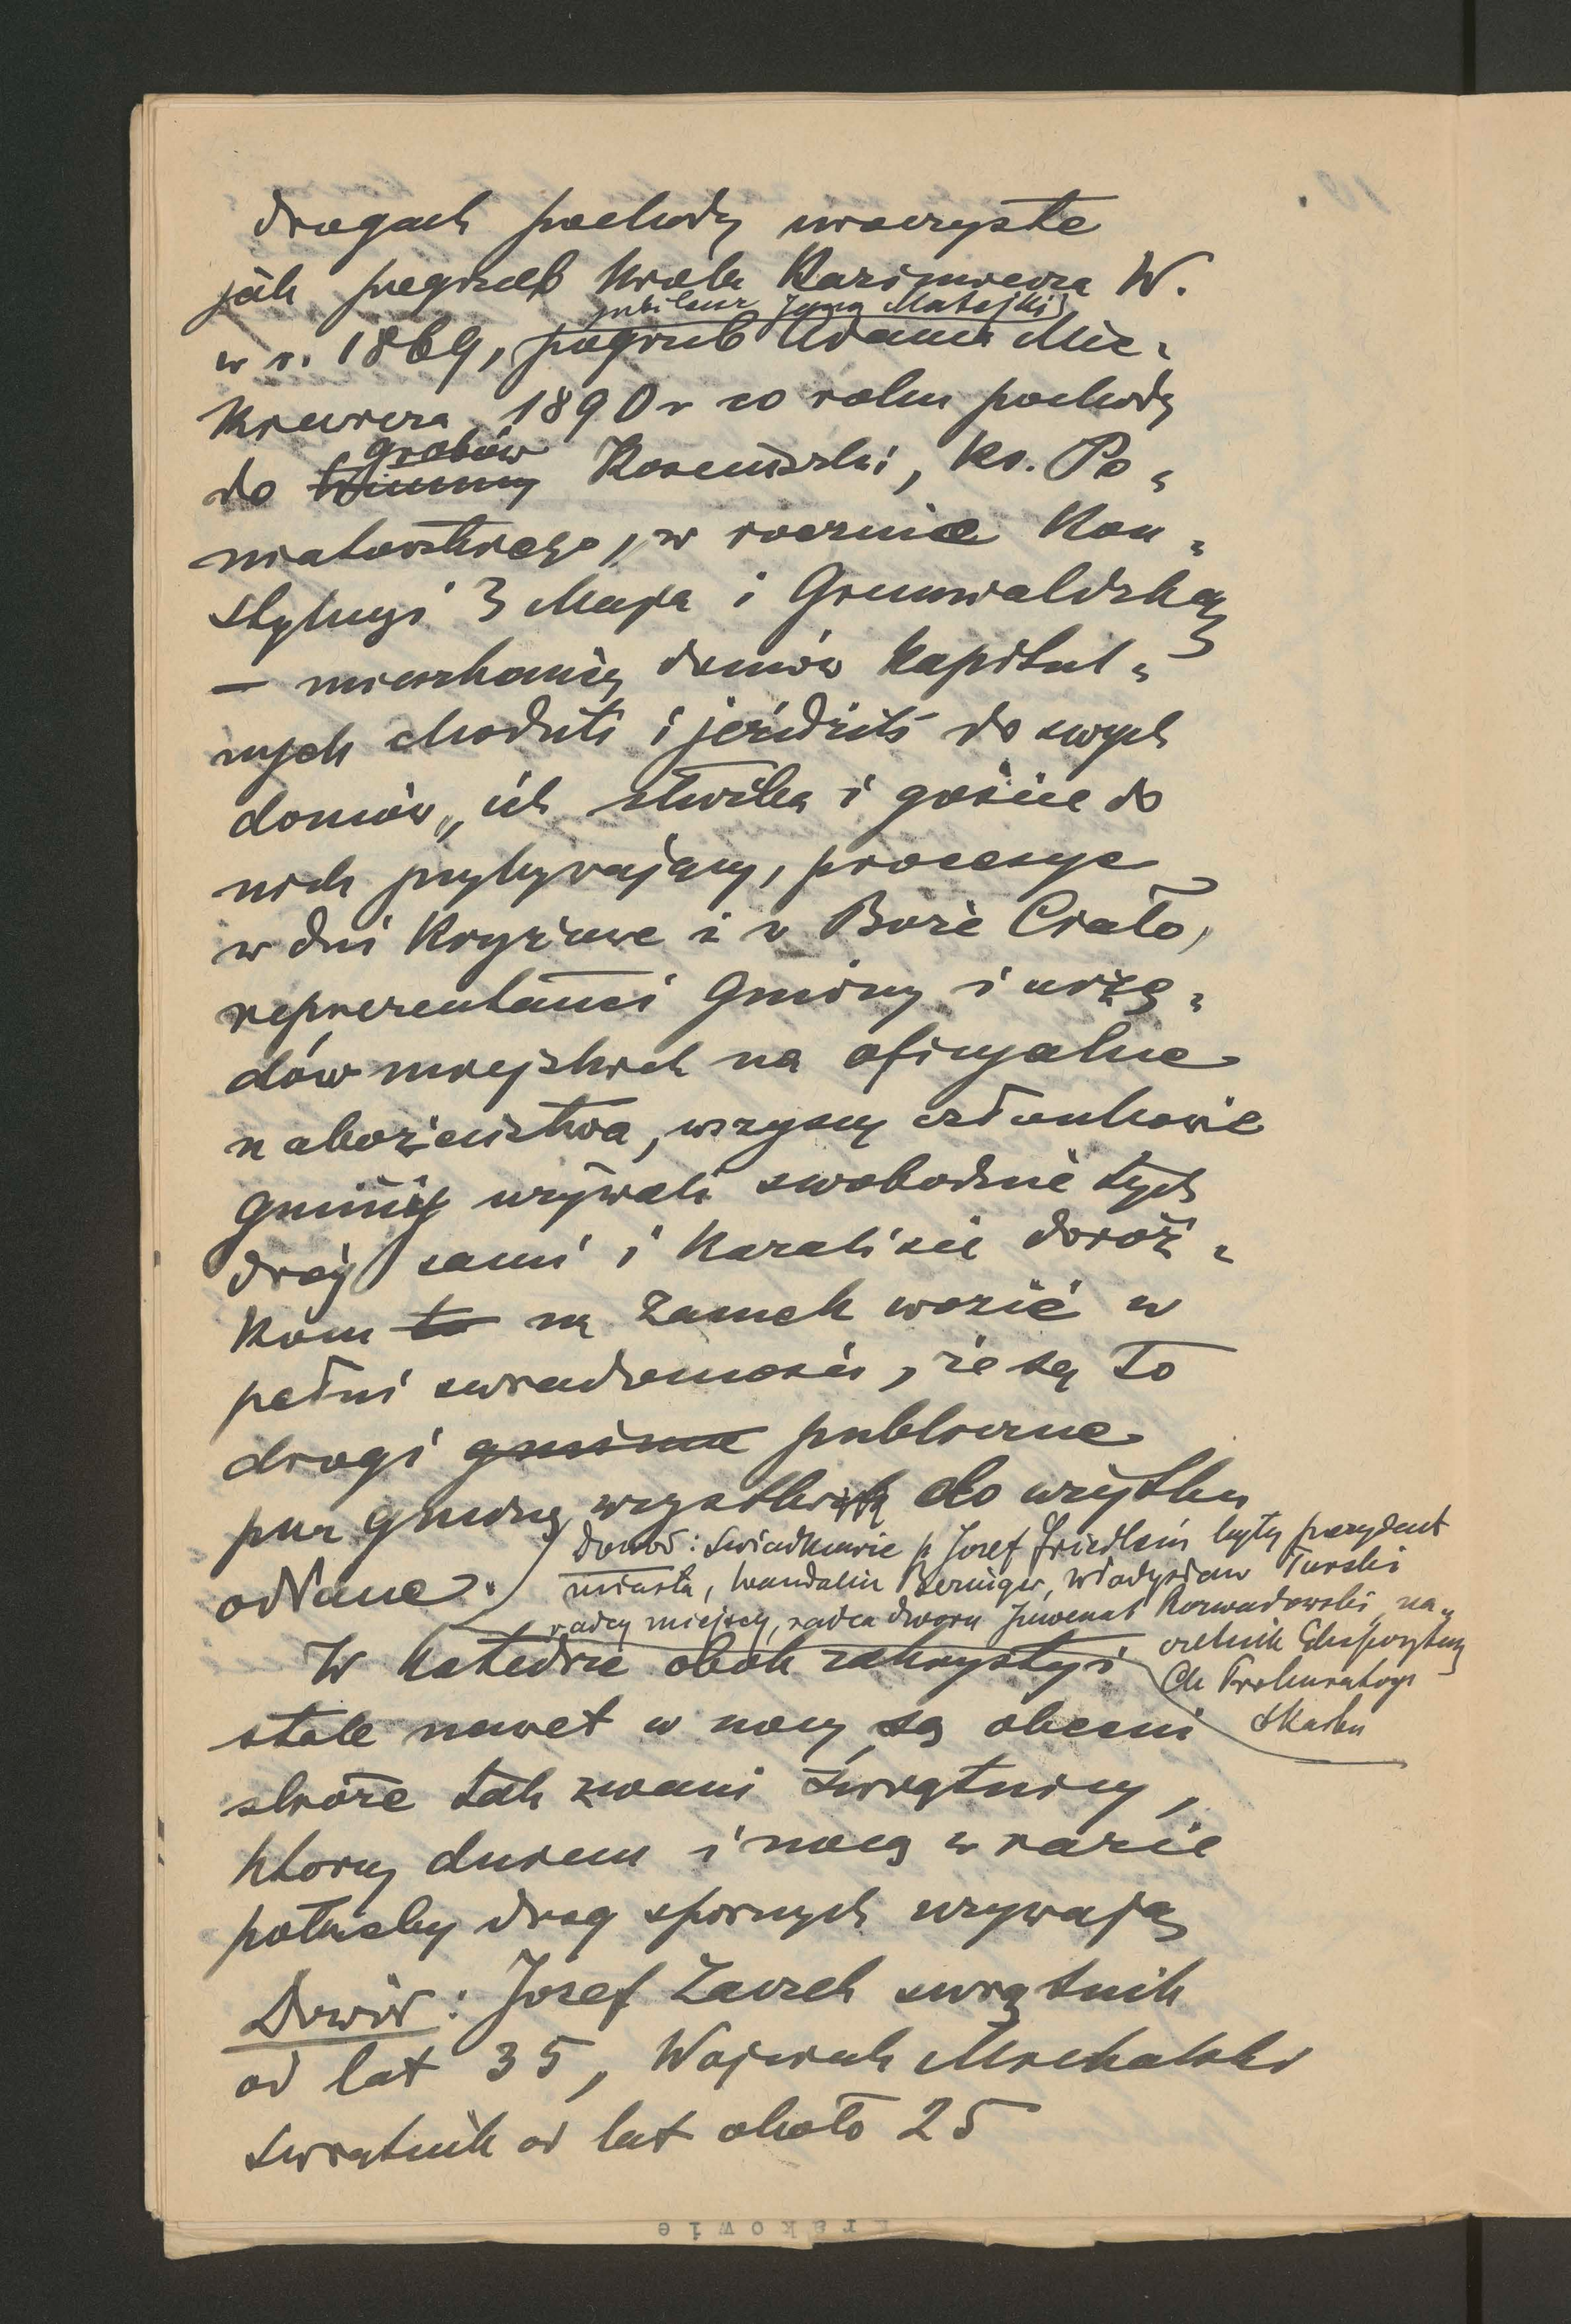 drogach pochody uroczyste
jak pogrzeb Króla Kazimierza W.
jubileusz Jana Matejki
w r. 1869, pogrzeb Adama Mic-
kiewicza 1890 r co roku pochody
grobów
do trumny Kosciuszki, ks. Po-
niatowskiego, w rocznice Kon-
stytucyi 3 Maja i Grunwaldzką
– mieszkańcy domów kapitul-
nych chodzili i jeździli do swych
domów, ich służba i goście do
nich przybywający, procesye
w dni Krzyżowe i w Boże Ciało,
reprezentanci Gminy i urzę-
dów miejskich na oficyalne
nabożeństwa, wszyscy członkowie
Gminy używali swobodnie tych
dróg sami i kazali się doroż-
kom to na Zamek wozić w
pełni swiadomości, że są to
drogi gminne publiczne
przez gminę wszystkim do użytku
oddane.
Dowód: Świadkowie p Józef Friedlein były prezydent
miasta, Wandalin Beringer, Władysław Turski
radcy miejscy, radca dworu Juwenal Rozwadowski na-
czelnik Ekspozytury
Ck Prokuratoryi
Skarbu
W Katedrze obok zakrystyi
stale nawet w nocy są obecni
stróże tak zwani świątnicy,
ktorzy dniem i nocą w razie
potrzeby drog spornych uzywają
Dowód: Józef Zaczek swiątnik
od lat 35, Wojciech Michalski
swiątnik od lat około 25